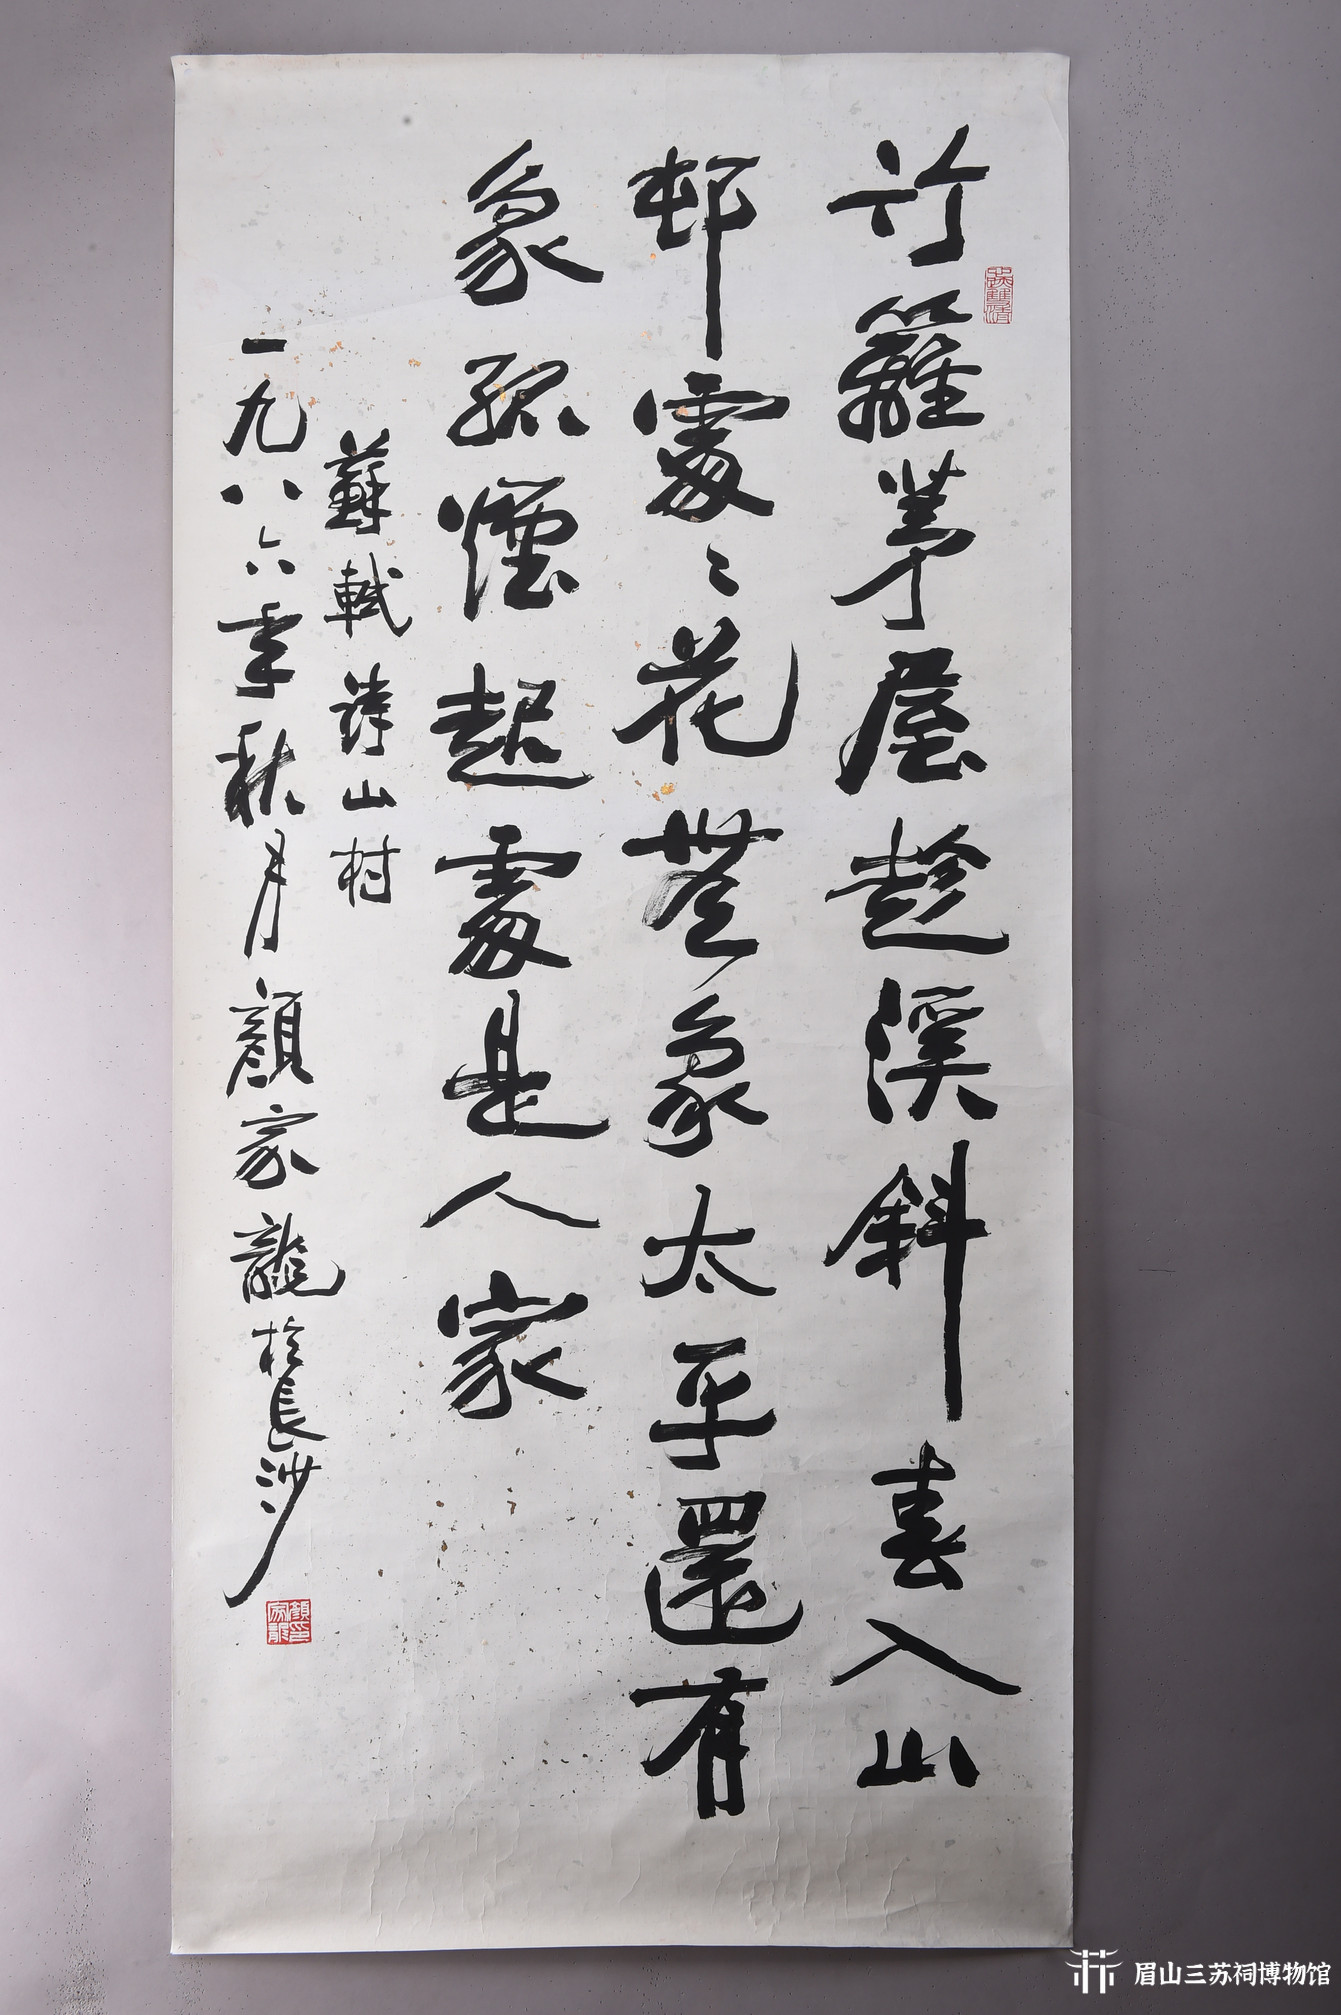 竹籬茅屋趁溪斜春入山
邨處〻花無象太平還有
象孤煙起處是人家
蘇軾詩山村
一九八六年秋月顏家龍於長沙
顏家龍印
眉山三苏祠博物馆